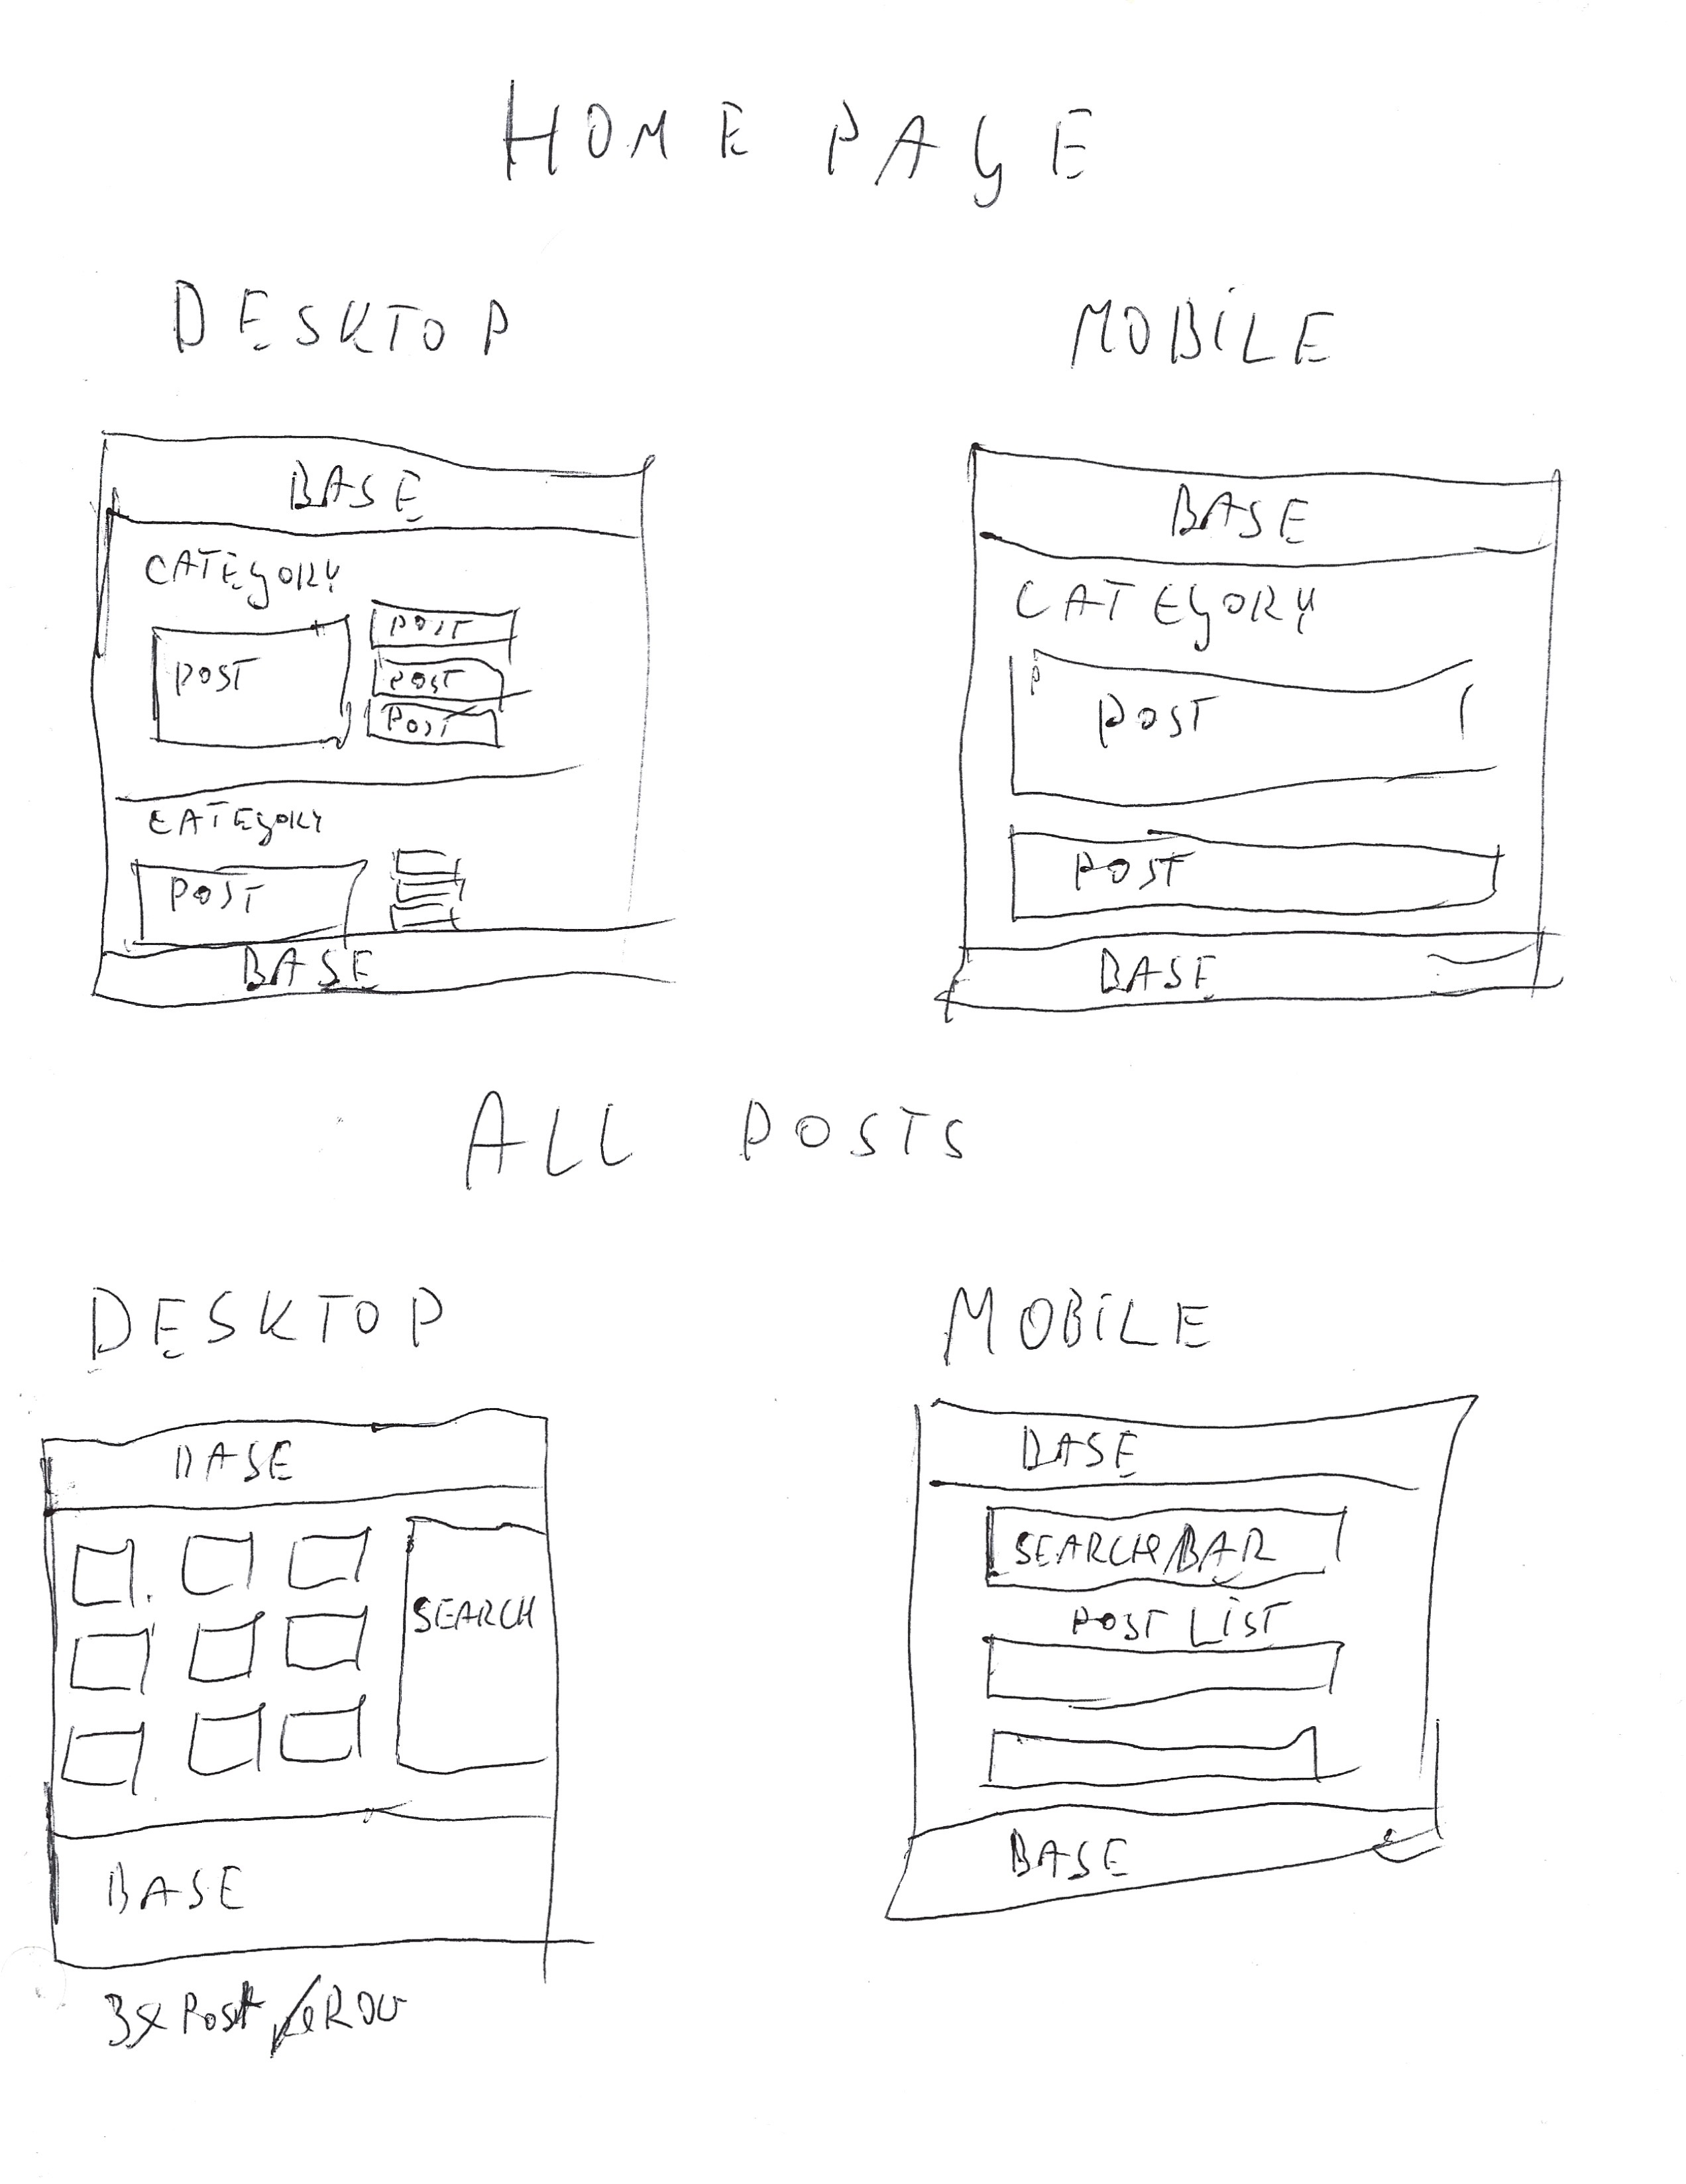 HOME PAGE
DESKTOP
MOBILE
BASE
CATEGORY
POST
POST
POST
POST
CATEGORY
POST
BASE
BASE
CATEGORY
POST
POST
BASE
ALL POSTS
DESKTOP
MOBILE
BASE
SEARCH
BASE
3x Post /ROW
BASE
SEARCH BAR
POST LIST
BASE